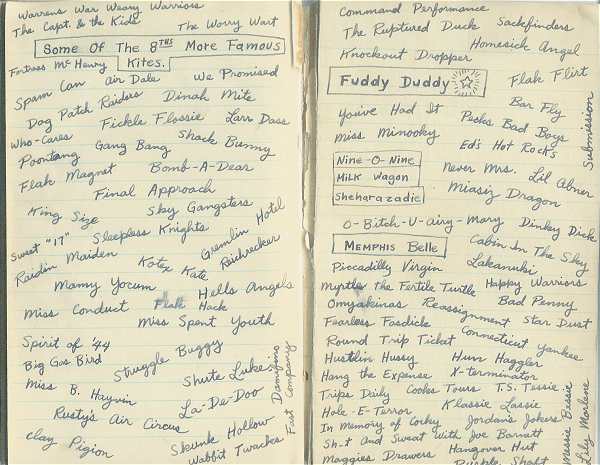 Warrens War Weary Warriors
The Capt. & the Kids
The Worry Wart
Some Of The 8THS More Famous
Kites.
Fortress McHenry
Spam Can
Air Dale
We Promised
Dog Patch Raiders
Dinah Mite
Who-Cares
Fickle Flossie
Larr Dass
Poontang
Gang Bang
Shack Bunny
Flak Magnet
Bomb-A-Dear
Final Approach
King Size
Sky Gangsters
Sweet "17"
Sleepless Knights
Gremlin Hotel
Raidin Maiden
Kotex Kate
Reichrecker
Mamy Yocum
Hells Angels
Miss Conduct
Flak Hack
Miss Spent Youth
Spirit of '44
Big Gas Bird
Struggle Buggy
Miss B. Hayvin
Shute Luke
Damifino
Fast Company
Rusty's Air Circus
La-De-Doo
Clay Pigion
Skunk Hollow
Wabbit Twacks
Command Performance
The Ruptured Duck
Sackfinders
Knockout Dropper
Homesick Angel
Fuddy Duddy
Flak Flirt
You've Had It
Bar Fly
Submission
Miss Minooky
Pecks Bad Boys
Ed's Hot Rocks
Nine-O-Nine
Milk Wagon
Never Mrs.
Lil Abner
Sheharazadie
Miasiz Dragon
O-Bitch-U-Airy-Mary
Dinky Dick
Memphis Belle
Cabin In The Sky
Piccadilly Virgin
Lakanuki
Myrtle The Fertile Turtle
Happy Warriors
Omyakinas
Reassignment
Bad Penny
Fearless Fosdick
Star Dust
Round Trip Ticket
Connecticut Yankee
Hustlin Hussy
Hun Haggler
Hang the Expense
X-terminator
Trips Daily
Cooks Tours
T.S. Tessie
Hole-E-Terror
Klassie Lassie
In Memory of Corky
Jordan's Jokers
Messie Bessie
Lily Marlene
Sh-t And Sweat With Joe Barnatt
Maggies Drawers
Hangover Hut
Purple Shaft